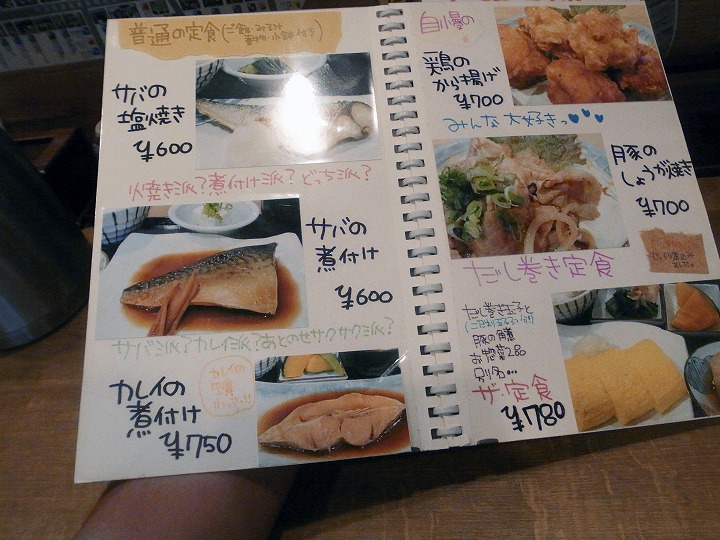 普通の定食(ご飯・みそ汁
漬物・小鉢付き)
サバの
塩焼き
¥600
焼き派?煮付け派?どっち派?
サバの
煮付け
¥600
サバ派?カレイ派?あとのせサクサク派?
カレイの
煮付け
¥750
カレイの
自慢の
鶏の
から揚げ
¥700
みんな大好きっ
豚の
しょうが焼き
¥700
だし巻き定食
だし巻き玉子と
豚の角煮
お惣菜2品
別名…
ザ・定食
¥780